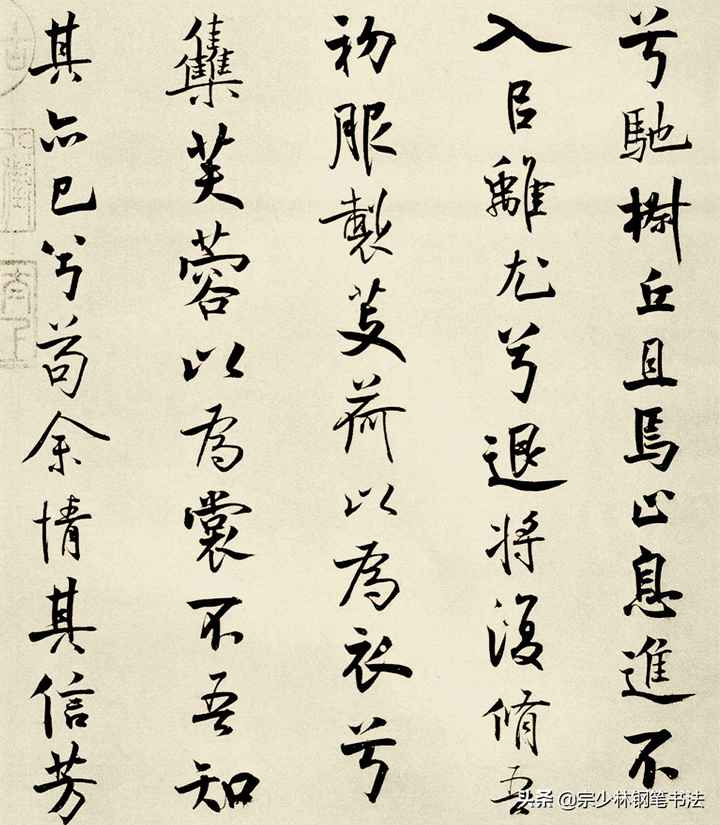 兮馳椒丘且焉止息進不
入㠯離尤兮退將復脩吾
初服製芰荷以為衣兮
雧芙蓉以為裳不吾知
其亦已兮苟余情其信芳
头条 @宗少林钢笔书法